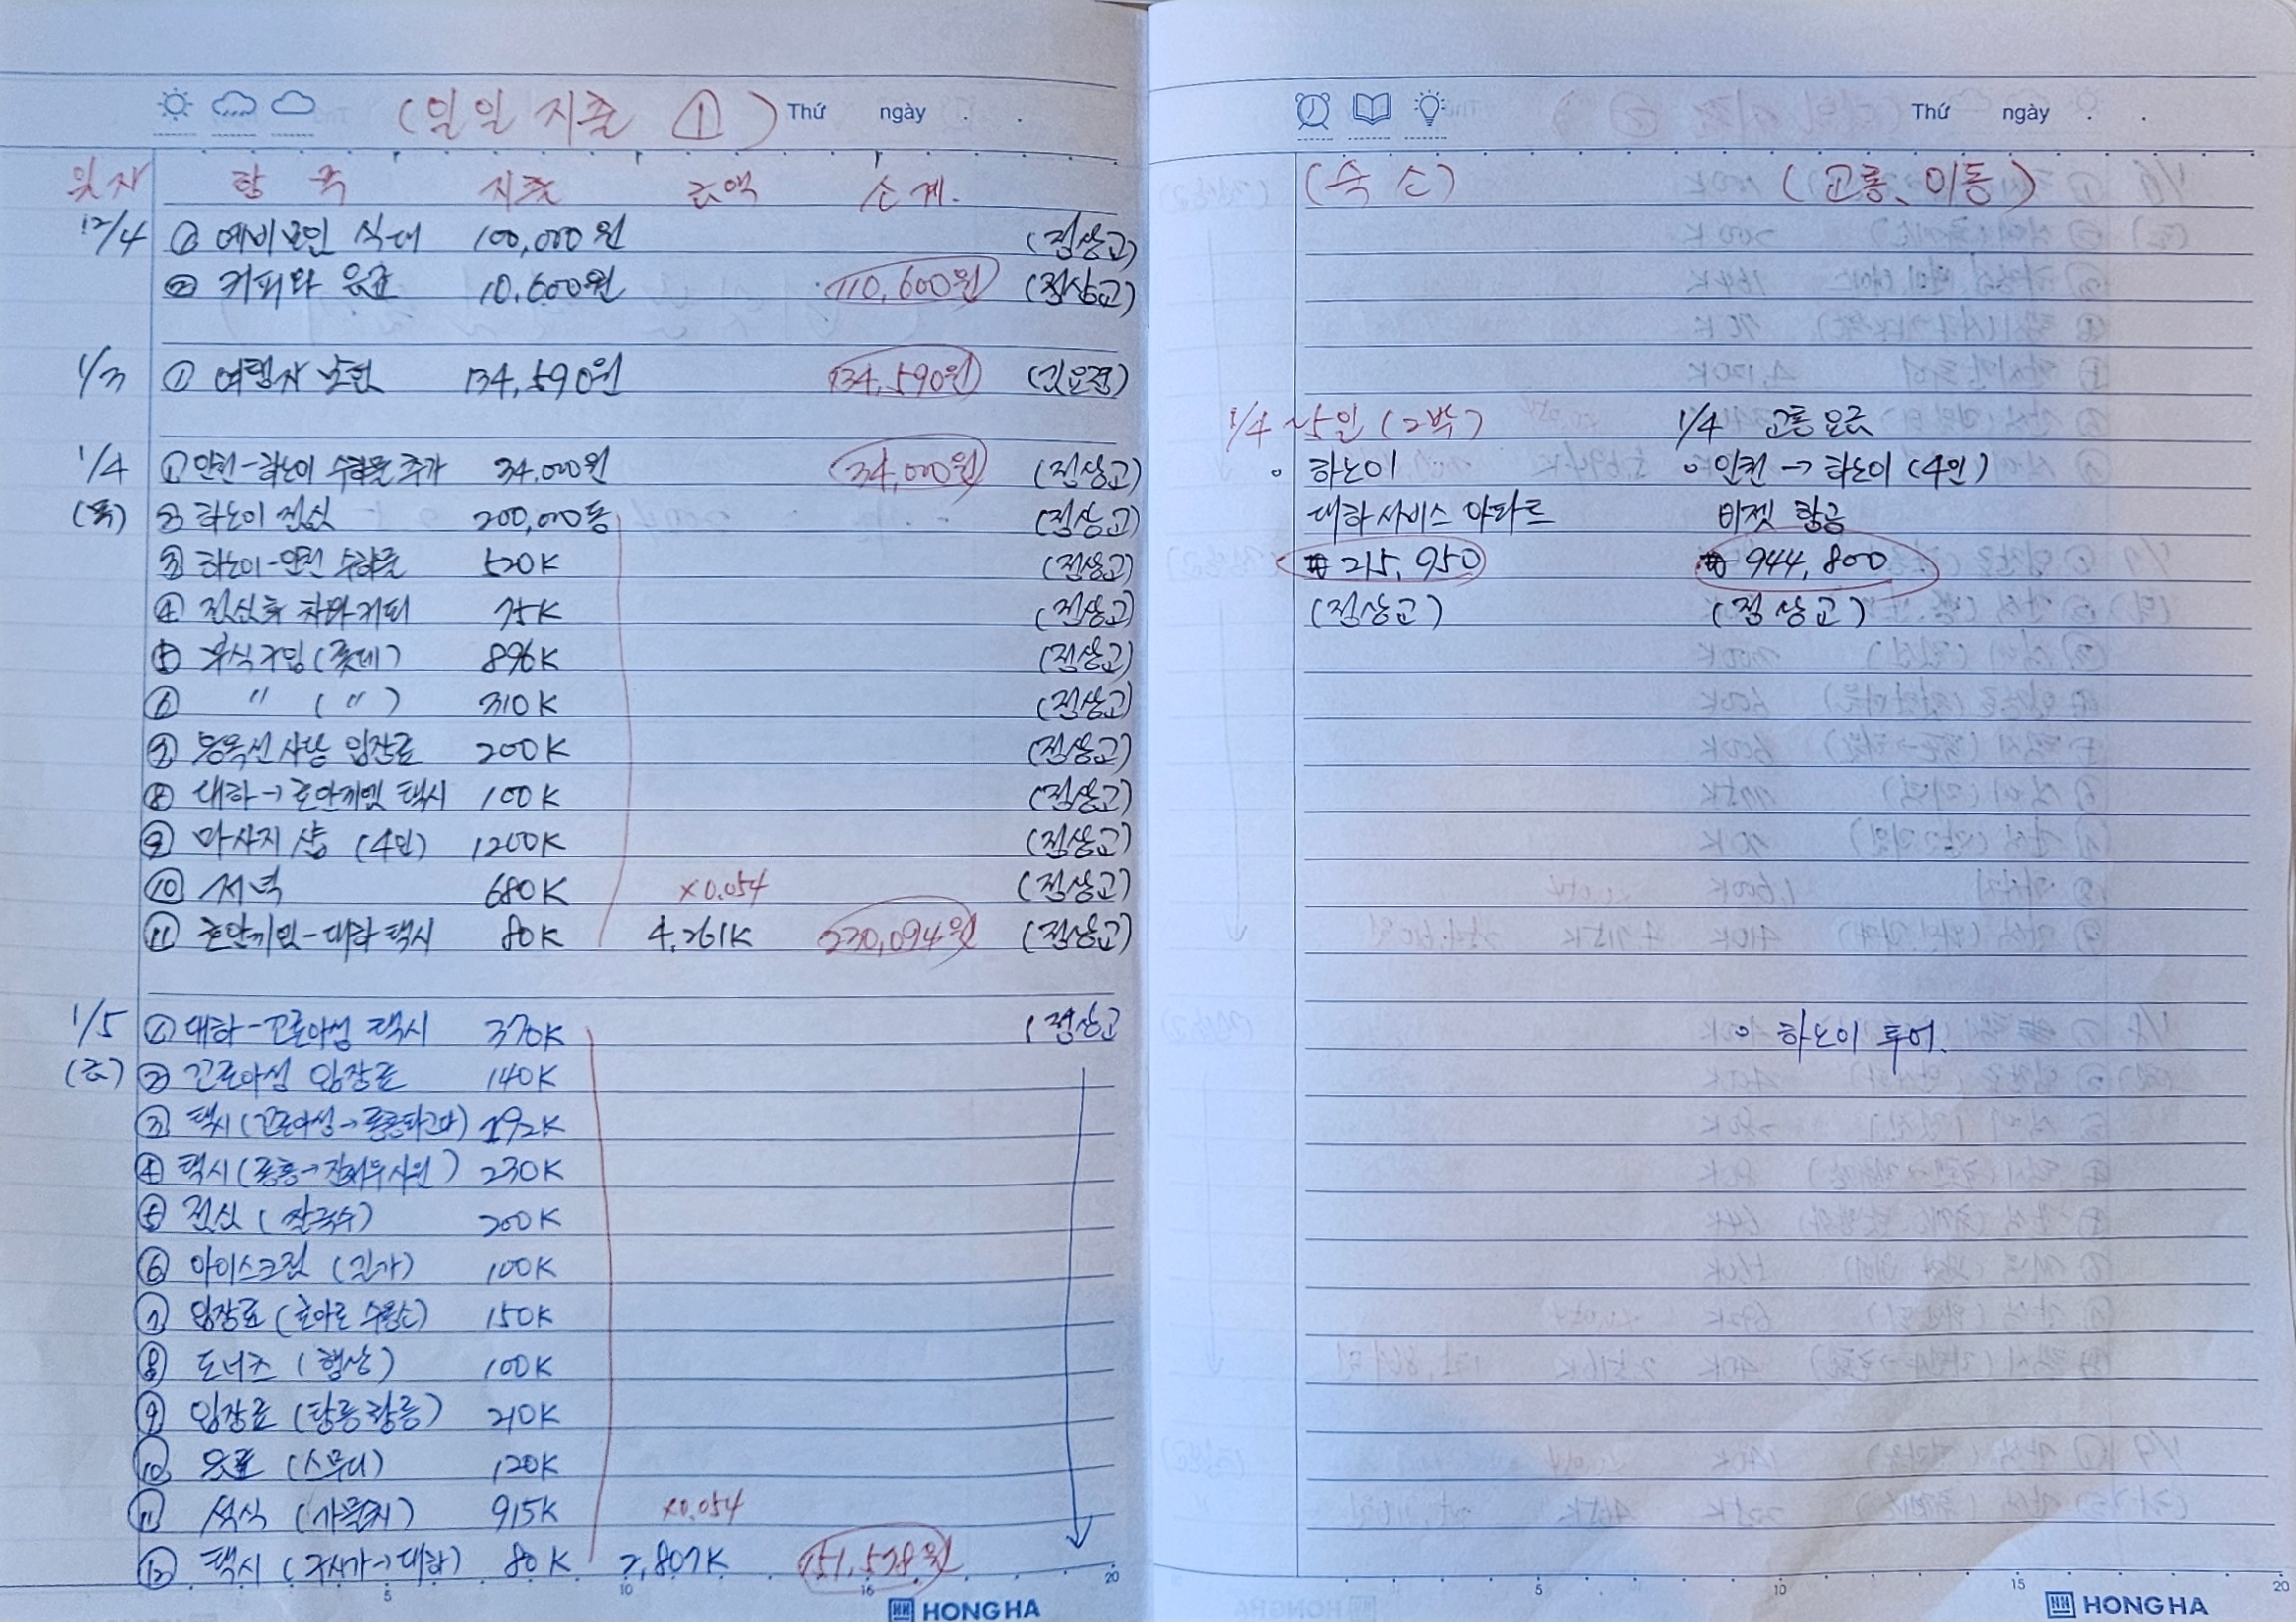 (일일 지출 ①) Thứ ngày . .
일자 항 목 지출 금액 소계.
12/4 ① 예비모임 식대 100,000원 (정상교)
② 커피와 음료 10,600원 110,600원 (정상교)
1/3 ① 여행자 보험 134,590원 134,590원
1/4 ① 인천-하노이 수하물 추가 34,000원 34,000원 (정상교)
(목) ② 하노이 점심 200,000동 (정상교)
③ 하노이-인천 수하물 520K (정상교)
④ 점심후 차와 커피 75K (정상교)
⑤ 부식구입 (롯데) 896K (정상교)
⑥ " ( " ) 310K (정상교)
⑦ 응옥선 사당 입장료 200K (정상교)
⑧ 대하→호안끼엠 택시 100K (정상교)
⑨ 마사지 샵 (4인) 1200K (정상교)
⑩ 저녁 680K ×0.054 (정상교)
⑪ 호안끼엠-대하 택시 80K 4,261K 230,094원 (정상교)
1/5 ① 대하-꼬로아성 택시 370K (정상교
(금) ② 꼬로아성 입장료 140K
③ 택시 (꼬로아성→롱비엔) 192K
④ 택시 (롱비엔→쩐꾸옥사원) 230K
⑤ 점심 (쌀국수) 200K
⑥ 아이스크림 (길가) 100K
⑦ 입장료 (호아로 수용소) 150K
⑧ 도너츠 (행상) 100K
⑨ 입장료 (탕롱황릉) 210K
⑩ 음료 (스무디) 120K
⑪ 석식 (가물치) 915K ×0.054
⑫ 택시 (구시가→대하) 80K 2,807K 151,578원
5 10 16 20
HONG HA
Thứ ngày . .
(숙 소) (교통、이동)
1/4 ~5일 (2박) 1/4 교통 요금
○ 하노이 ○ 인천 → 하노이 (4인)
대하 서비스 아파트 비젯 항공
₩ 215,950 ₩ 944,800
(정상교) (정상교)
○ 하노이 투어.
5 10 15 20
HONG HA